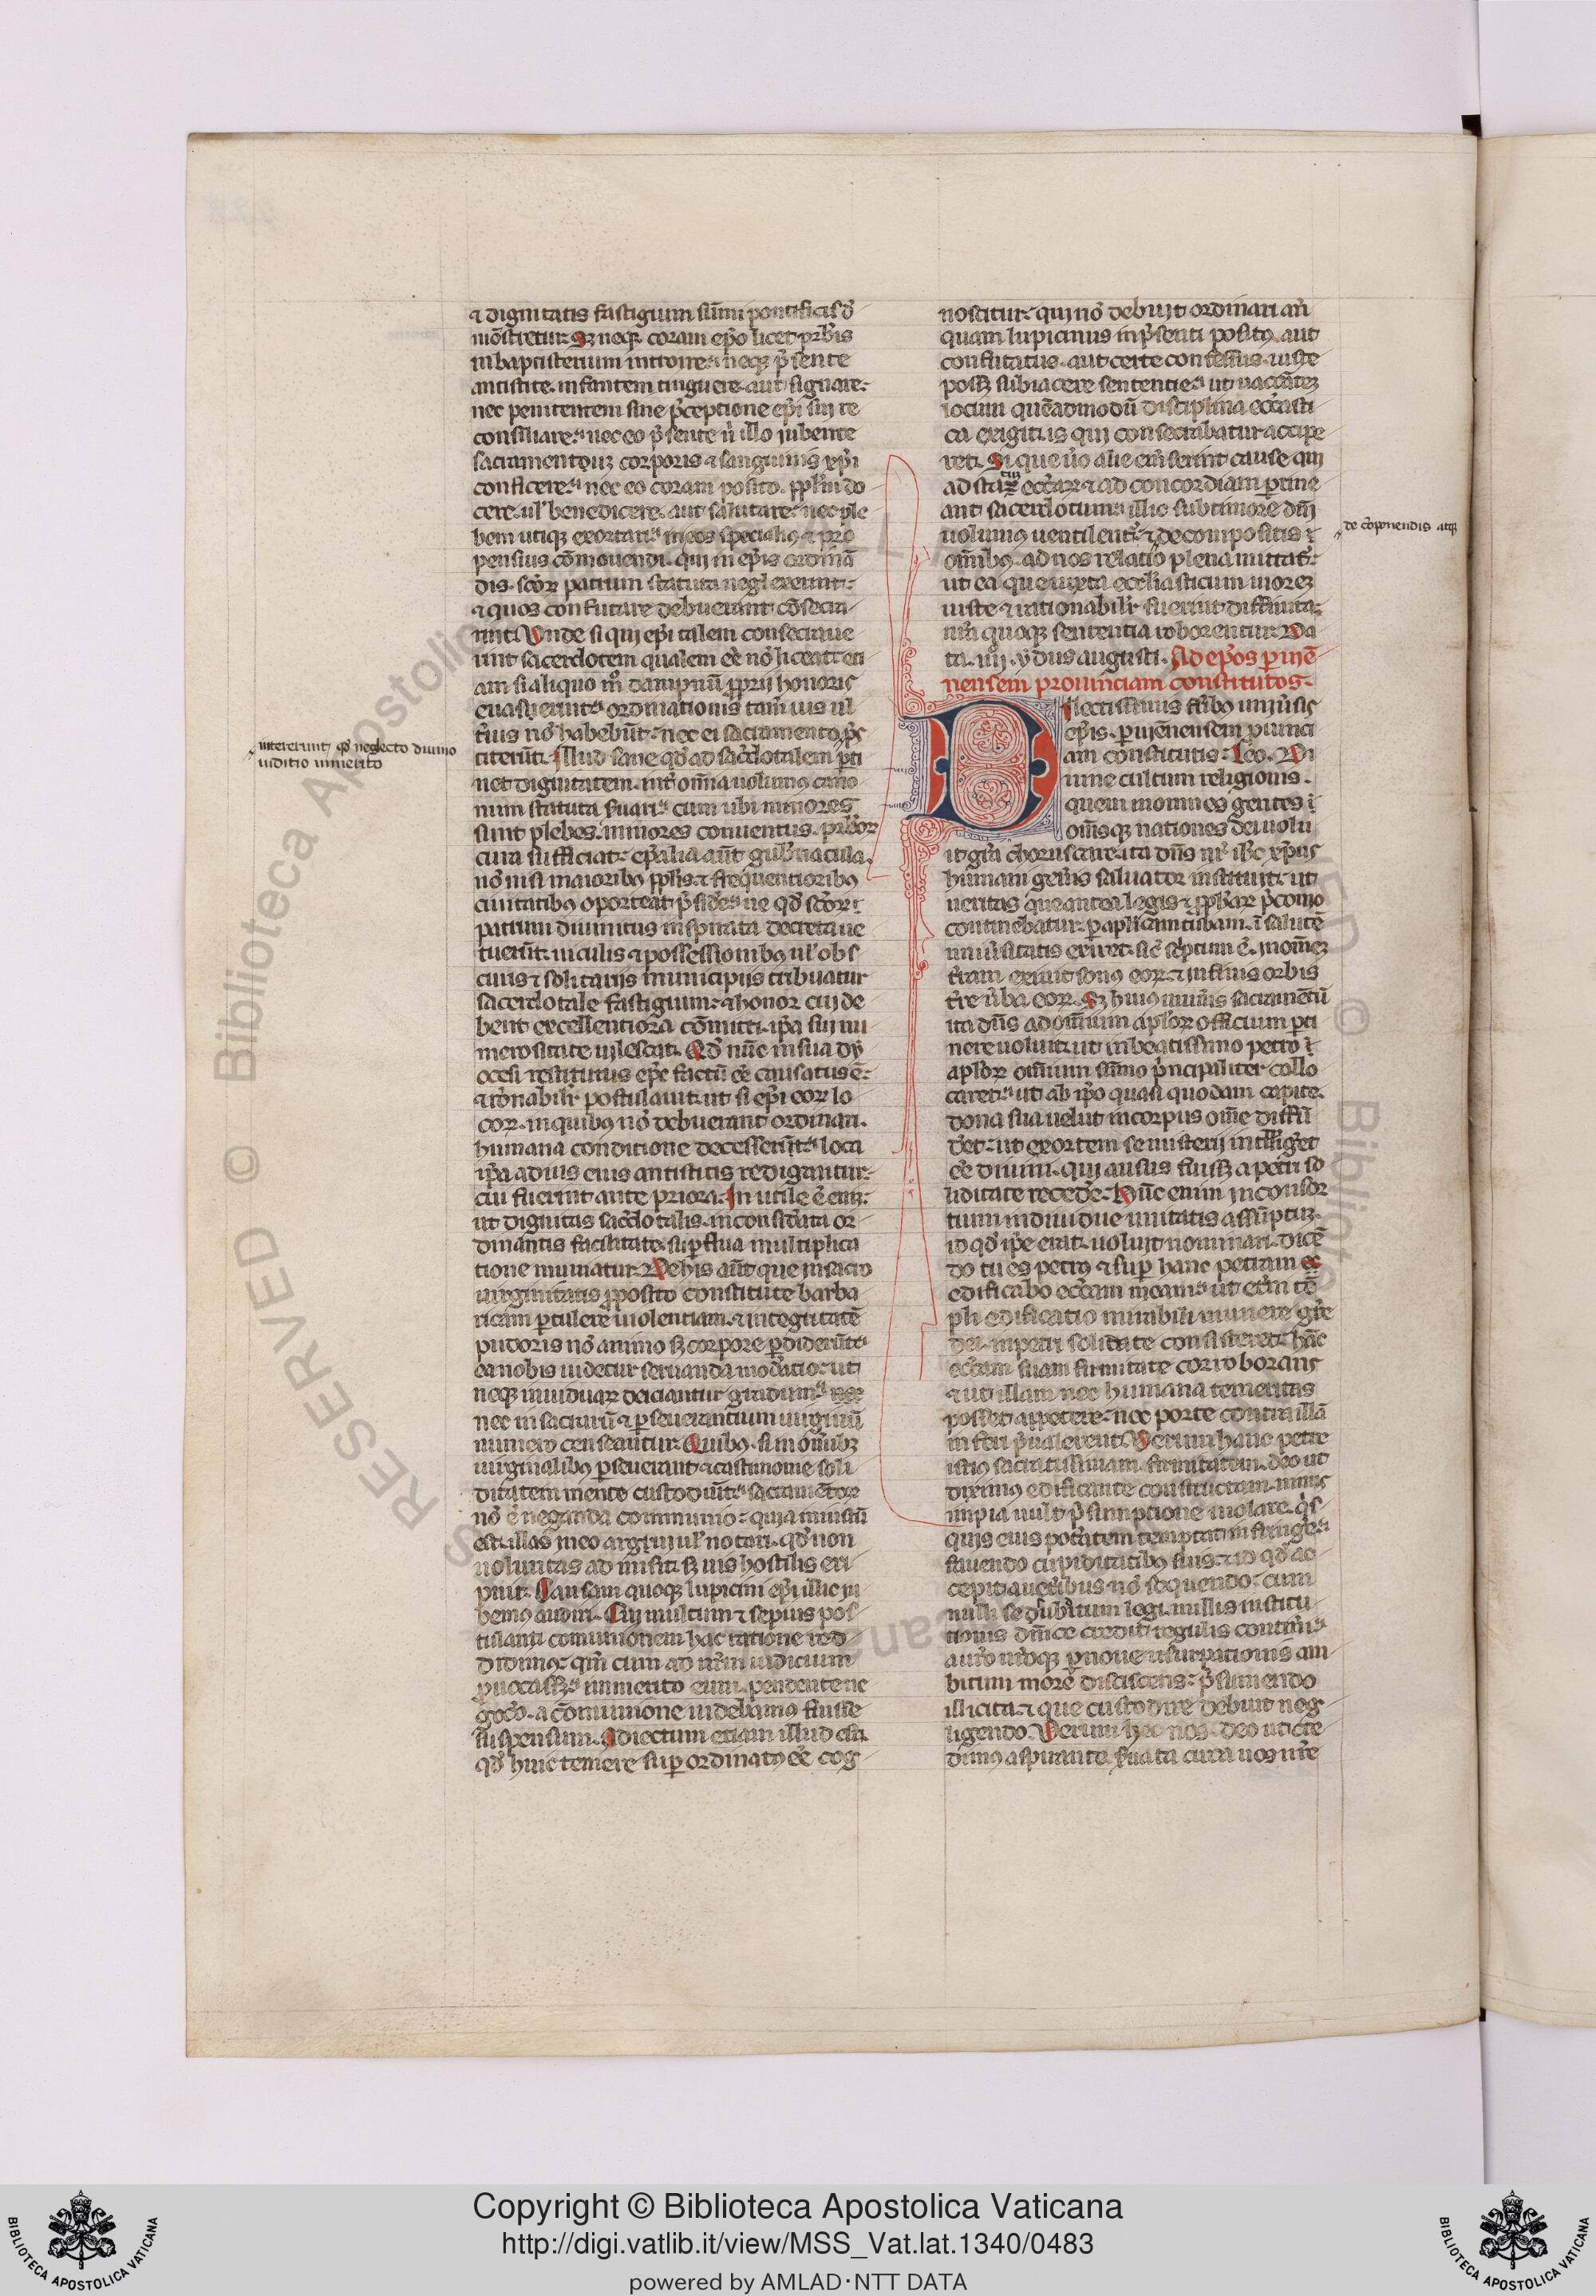 ⁊ dignitatis fastigium sūmi pontificis d̓
mōstretur. Sꝫ neqꝫ coram ep̄o licet pr̄bris
in baptisterium introire. neqꝫ p̄sente
antistite. infantem tinguere. aut signare.
nec penitentem sine p̄ceptione ep̄i sui re
consiliare. nec eo p̄sente n̄ illo iubente
sacramentum corporis ⁊ sanguinis xp̄i
conficere. nec eo coram posito. ppl̄m do
cere. ul̓ benedicere. aut salutare. nec ple
bem utiqꝫ exortari. in eos specialiꝰ ⁊ pro
pensius cōmouendi. qui in ep̄is ordinā
dis. sc̄oꝝ patrum statuta neglexerunt.
⁊ quos confutare debuerant cōsecra
runt. Vnde si qui ep̄i talem consecraue
runt sacerdotem qualem eē nō liceat. eti
am si aliquo mō dampnū pprij honoris
euaserint. ordinationis tam̄ ius ul
terius nō habebūt. nec ei sacramento p̄s
titerūt. Illud sane qd̓ ad sac̄dotalem p̱ti
net dignitatem. int̓ om̄ia uolumus cano
num statuta s̓uari. cum ubi minores
sunt plebes. minores conuentus. pr̄broꝝ
cura sufficiat. ep̄alia aūt gub̓nacula.
nō nisi maioribꝰ ppl̄is. ⁊ frequentioribꝰ
ciuitatibꝰ oporteat p̄sid̓e. ne qd̓ sc̄oꝝ
patrum diuinitus inspirata decreta ue
tuerūt. uiculis ⁊ possessionibꝰ ul̓ obs
curis ⁊ solitarijs municipijs tribuatur
sacerdotale fastigium. ⁊ honor cui de
bent excellentiora cōmitti. ip̄a sui nu
merositate uilescat. Qd̓ nūc in sua dy
ocesi restitutus ep̄e factū eē causatus ē.
⁊ rōnabilit̓ postulauit. ut si ep̄i eoꝝ lo
coꝝ. in quibus nō debuerant ordinari.
humana conditione decesserīt. loca
ip̄a ad ius eius antistitis redigantur.
cui fuerint ante priora. In utile ē eni.
ut dignitas sac̄dotalis. inconsid̓ata or
dinantis facilitate. sup̱flua multiplica
tione minuatur. De his aūt que in sacro
uirginitatis pposito constitute barba
ricam p̱tulere uiolentiam. ⁊ integritatē
pudoris nō animo sꝫ corpore p̱diderūt.
ea nobis uidetur seruanda mod̓atio. ut
neqꝫ in uiduaꝝ deiciantur gradum. nec
nec in sacrarū ⁊ p̱seuerantium uirginū
numero censeantur. Quibꝰ. si in om̄ibꝫ
uirginalibꝰ p̱seuerant ⁊ castimonie soli
ditatem mente custodiūt. sacramētoꝝ
nō ē neganda communio. quia iniustū
est. illas in eo argui ul̓ notari. qd̓ non
uoluntas admisit. sꝫ uis hostilis eri
puit. Causam quoqꝫ lupicini ep̄i illic iu
bemꝰ audiri. Cui multum ⁊ sepius pos
tulanti communionem hac ratione red
didimꝰ. qm̄ cum ad nr̄m iudicium
puocassꝫ. immerito eum. pendente ne
gocō. a cōmunione uidebimꝰ fuisse
suspensum. Adiectum etiam illud est.
qd̓ huic temere sup̱ordinatꝰ eē cog
intererunt. qd̓ neglecto diuino
iuditio immerito
noscitur. qui nō debuit ordinari an̄
quam lupicinus in p̄senti positꝰ. aut
confutatus. aut certe confessus. iuste
possꝫ subiacere sententie. ut uacātēꝫ
locum quēadmodū disciplina eccl̄asti
ca exigit. is qui consecrabatur accipe
ret. Si que u̓o alie em̄serint cause qui
ad statuꝫ eccl̄iaꝝ ⁊ ad concordiam p̱tine
ant sacerdotum. illic sub timore dn̄i
uolumꝰ uentilent̓. ⁊ de compositis ⁊
om̄ibꝰ. ad nos relatio plena mittat̓.
ut ea que iuxta ecclesiasticum moreꝫ
iuste ⁊ rationabilit̓ fuerint diffinita.
nr̄a quoqꝫ sententia roborentur. Da
ta. iiij. ydus augusti. Ad ep̄os p̱ uiē
nensem prouinciam constitutos.
de cōponendis atqꝫ
Dilectissimis fr̄ibꝰ uniu̓sis
ep̄is. p̱ uiēnensem prouinci
am constitutis. Leo. Di
uine cultum religionis.
quem in omnes gentes ⁊
om̄sqꝫ nationes dei uolu
it gr̄a choruscare. ita dn̄s nr̄ ih̄c xp̄us
humani gen̓is saluator instituit. ut
ueritas que antea legis ⁊ pph̄aꝝ p̄conio
continebatur. p̱ apl̄icam tubam. ī salutē
uniu̓sitatis exiret. sic̄ sc̄ptum ē. in om̄eꝫ
t̓ram exiuit sonus eoꝝ. ⁊ in fines orbis
t̓re u̓ba eoꝝ. Sꝫ huiꝰ mun̓is sacramētū
ita dn̄s ad om̄ium apl̄oꝝ officium p̱ti
nere uoluit. ut in beatissimo petro ⁊
apl̄oꝝ om̄ium sūmo p̄ncipaliter collo
caret. ut ab ip̄o quasi quodam capite.
dona sua uelut in corpus om̄e diffū
d̓et. ut exortem se misterij intellig̓et
eē diuini. qui ausus fuissꝫ a petri so
liditate reced̓e. Hūc enim in consor
tium indiuidue unitatis assūptuꝫ.
id qd̓ ip̄e erat. uoluit nominari. dicē
do tu es petrꝰ ⁊ sup̱ hanc petram
edificabo eccl̄iam meam. ut et̓ni tē
pli edificatio mirabili munere gr̄e
dei. in petri solidate consisteret. hāc
eccl̄iam suam firmitate corroborans
⁊ ut illam nec humana temeritas
posset appetere. nec porte contra illā
inferi p̄ualerent. Verum hanc petre
istiꝰ sacratissimam firmitatem. deo ut
diximꝰ edificante constructam. nimis
impia uult p̄sumptione uiolare. q̓s
quis eius pot̄atem temptat infring̓e.
fauendo cupiditatibꝰ suis. ⁊ id qd̓ ac
cepit a uet̓ibus nō sequendo. cum
nulli se subditum legi. nullis institu
tionis dn̄ice credit regulis contineri.
a nr̄o u̓roqꝫ p̱ noue usurpationis am
bitum more discisscens. p̄sumendo
illicita. ⁊ que custodire debuit neg
ligendo. Verum hec nos. deo ut cre
dimꝰ aspirante s̓uata cura uos nr̄e
Copyright © Biblioteca Apostolica Vaticana
http://digi.vatlib.it/view/MSS_Vat.lat.1340/0483
powered by AMLAD·NTT DATA
BIBLIOTECA APOSTOLICA VATICANA
BIBLIOTECA APOSTOLICA VATICANA